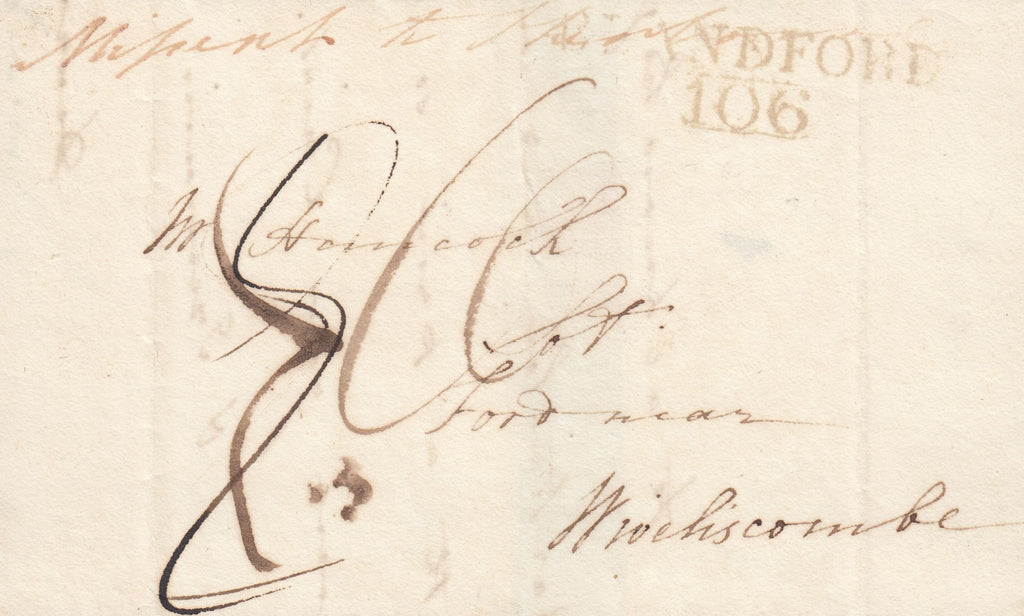 Missent to
NDFORD
106
Mr Hancock
Ford near
Wiveliscombe